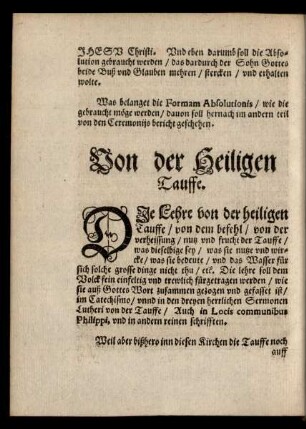 JHESV Christi. Vnd eben darumb soll die Abso-
lution gebraucht werden / das dardurch der Sohn Gottes
beide Buß vnd Glauben mehren / stercken / vnd erhalten
wolte.
Was belanget die Formam Absolutionis / wie die
gebraucht möge werden / dauon soll hernach im andern teil
von den Ceremonijs bericht geschehen.
Von der Heiligen
Tauffe.
DIe Lehre von der heiligen
Tauffe / von dem befehl / von der
verheissung / nutz vnd frucht der Tauffe /
was dieselbige sey / was sie nutze vnd wir-
cke / was sie bedeute / vnd das Wasser für
sich solche grosse dinge nicht thu / etc. Die lehre soll dem
Volck fein einfeltig vnd trewlich fürgetragen werden / wie
sie auß Gottes Wort zusammen gezogen vnd gefasset ist /
im Catechismo / vnnd in den dreyen herrlichen Sermonen
Lutheri von der Tauffe / Auch in Locis communibus
Philippi, vnd in andern reinen schrifften.
Weil aber bißhero inn diesen Kirchen die Tauffe noch
auff